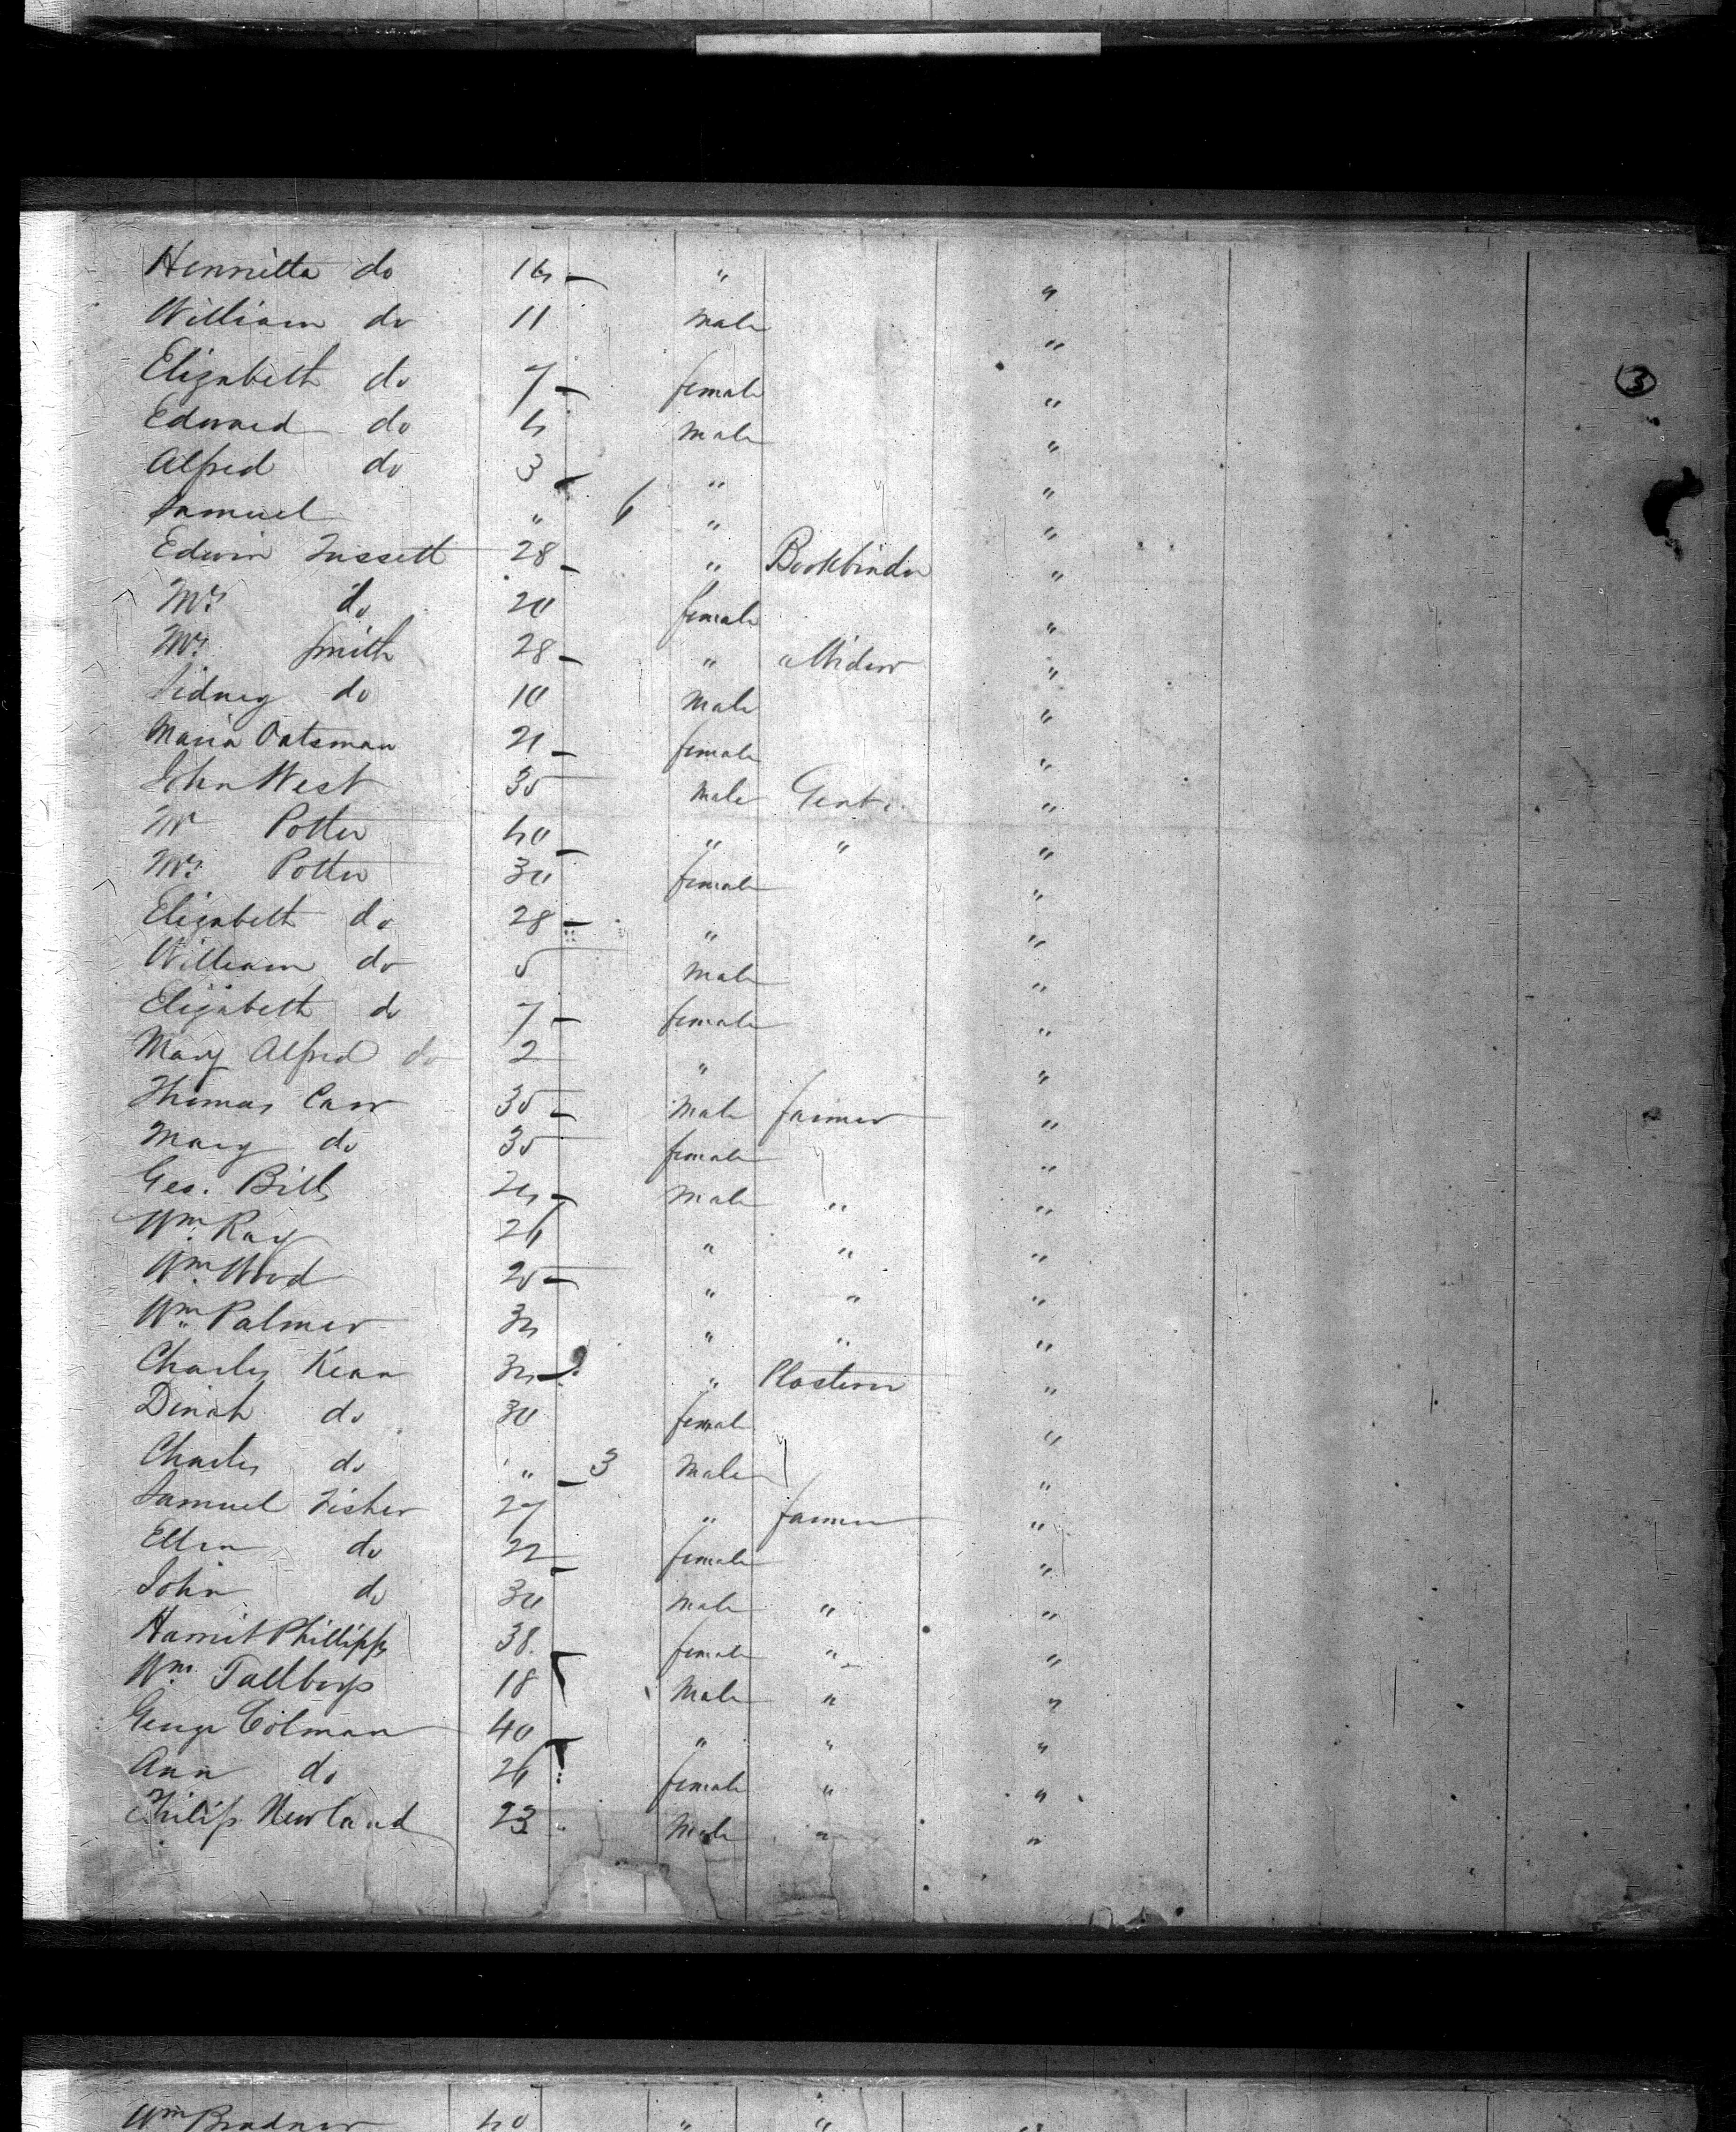 Henrietta do 14 — " "
William do 11 Male "
Elizabeth do 7 — female "
Edward do 4 Male "
Alfred do 3 — " "
Samuel " 6 " "
Edwin 28 — " Bookbinder "
Mrs do 20 female "
Mrs Smith 28 — " Widow "
Sidney do 10 Male "
Maria Oatsman 21 — female "
John West 35 Male Gent. "
Mr Potter 40 — " " "
Mrs Potter 30 female "
Elizabeth do 28 — " "
William do 5 Male "
Elizabeth do 7 — female "
Mary Alfred do 2 " "
Thomas Carr 35 — Male farmer "
Mary do 35 female "
Geo. Bills 24 — Male " "
Wm Ray 26 " " "
Wm Wood 25 — " " "
Wm Palmer 34 " " "
Charles Kean 34 — " Plasterer "
Dinah do 30 female "
Charles do " — 3 Male "
Samuel Fisher 27 " farmer "
Ellen do 22 — female "
John do 30 Male " "
Harriet Phillips 38 — female " "
Wm Tallboys 18 Male " "
George Colman 40 — " " "
Ann do 26 female " "
Philip Newland 23 Male " "
3
Wm Bradner 40 " " "